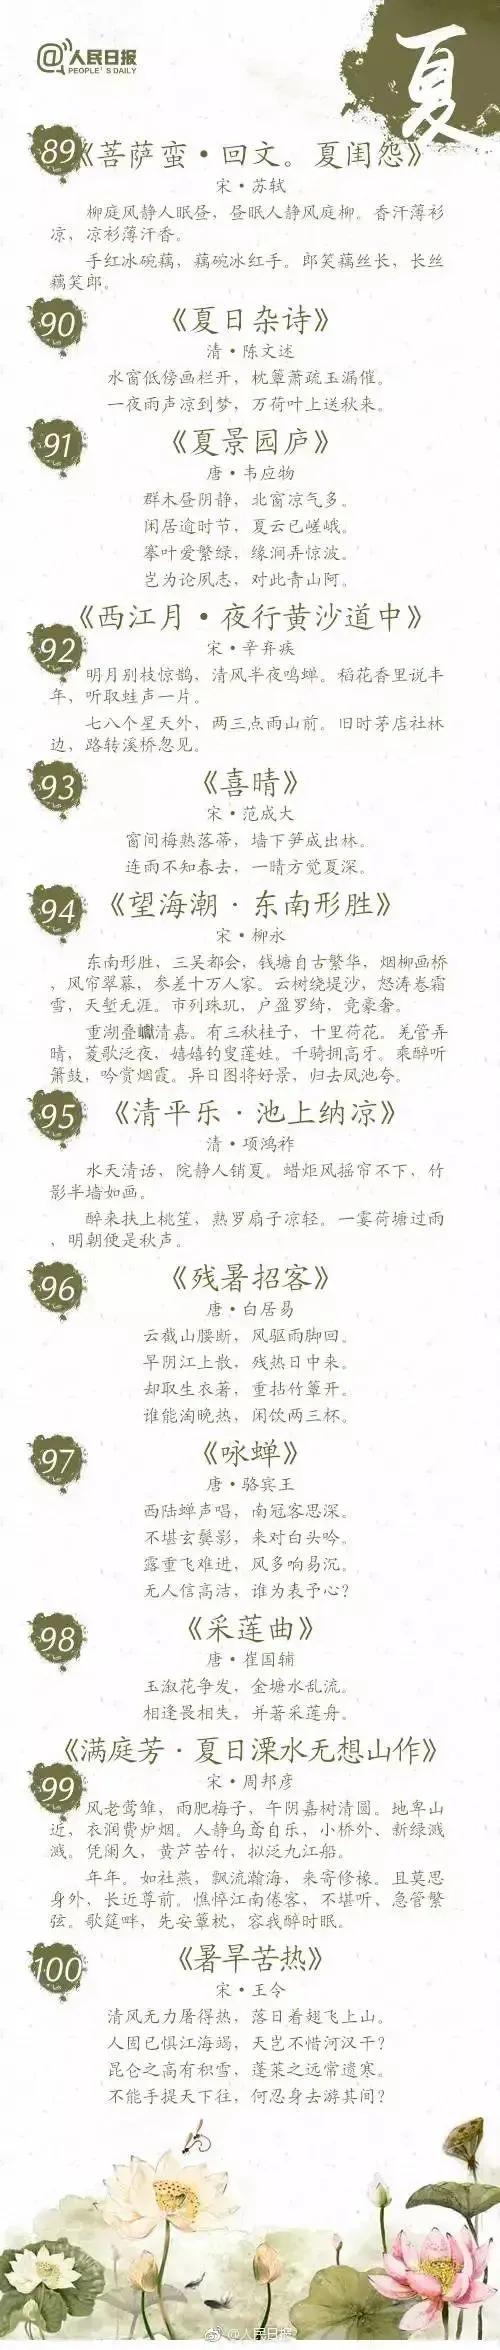 @人民日报
PEOPLE'S DAILY
夏
89
《菩萨蛮·回文。夏闺怨》
宋·苏轼
柳庭风静人眠昼，昼眠人静风庭柳。香汗薄衫
凉，凉衫薄汗香。
手红冰碗藕，藕碗冰红手。郎笑藕丝长，长丝
藕笑郎。
90
《夏日杂诗》
清·陈文述
水窗低傍画栏开，枕簟萧疏玉漏催。
一夜雨声凉到梦，万荷叶上送秋来。
91
《夏景园庐》
唐·韦应物
群木昼阴静，北窗凉气多。
闲居逾时节，夏云已嵯峨。
搴叶爱繁绿，缘涧弄惊波。
岂为论夙志，对此青山阿。
《西江月·夜行黄沙道中》
92
宋·辛弃疾
明月别枝惊鹊，清风半夜鸣蝉。稻花香里说丰
年，听取蛙声一片。
七八个星天外，两三点雨山前。旧时茅店社林
边，路转溪桥忽见。
93
《喜晴》
宋·范成大
窗间梅熟落蒂，墙下笋成出林。
连雨不知春去，一晴方觉夏深。
94
《望海潮·东南形胜》
宋·柳永
东南形胜，三吴都会，钱塘自古繁华，烟柳画桥
，风帘翠幕，参差十万人家。云树绕堤沙，怒涛卷霜
雪，天堑无涯。市列珠玑，户盈罗绮，竞豪奢。
重湖叠巘清嘉。有三秋桂子，十里荷花。羌管弄
晴，菱歌泛夜，嬉嬉钓叟莲娃。千骑拥高牙。乘醉听
箫鼓，吟赏烟霞。异日图将好景，归去凤池夸。
95
《清平乐·池上纳凉》
清·项鸿祚
水天清话，院静人销夏。蜡炬风摇帘不下，竹
影半墙如画。
醉来扶上桃笙，熟罗扇子凉轻。一霎荷塘过雨
，明朝便是秋声。
96
《残暑招客》
唐·白居易
云截山腰断，风驱雨脚回。
早阴江上散，残热日中来。
却取生衣著，重拈竹簟开。
谁能淘晚热，闲饮两三杯。
97
《咏蝉》
唐·骆宾王
西陆蝉声唱，南冠客思深。
不堪玄鬓影，来对白头吟。
露重飞难进，风多响易沉。
无人信高洁，谁为表予心？
98
《采莲曲》
唐·崔国辅
玉溆花争发，金塘水乱流。
相逢畏相失，并著采莲舟。
《满庭芳·夏日溧水无想山作》
99
宋·周邦彦
风老莺雏，雨肥梅子，午阴嘉树清圆。地卑山
近，衣润费炉烟。人静乌鸢自乐，小桥外、新绿溅
溅。凭阑久，黄芦苦竹，拟泛九江船。
年年。如社燕，飘流瀚海，来寄修椽。且莫思
身外，长近尊前。憔悴江南倦客，不堪听、急管繁
弦。歌筵畔，先安簟枕，容我醉时眠。
100
《暑旱苦热》
宋·王令
清风无力屠得热，落日着翅飞上山。
人固已惧江海竭，天岂不惜河汉干？
昆仑之高有积雪，蓬莱之远常遗寒。
不能手提天下往，何忍身去游其间？
@人民日报